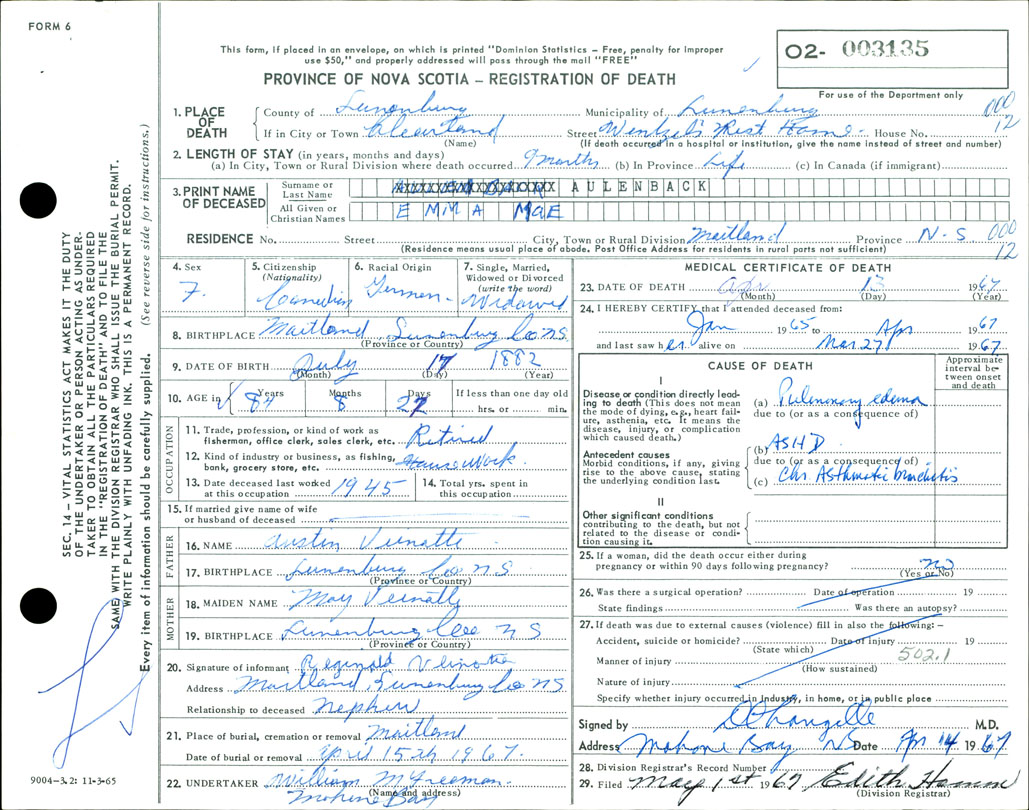 FORM 6
This form, if placed in an envelope, on which is printed "Dominion Statistics – Free, penalty for improper
use $50," and properly addressed will pass through the mail "FREE"
PROVINCE OF NOVA SCOTIA – REGISTRATION OF DEATH
O2- 003135
For use of the Department only
1. PLACE OF DEATH County of Lunenburg Municipality of Lunenburg 000
If in City or Town Street Wentzel's Rest Home House No. 12
(Name) (If death occurred in a hospital or institution, give the name instead of street and number)
2. LENGTH OF STAY (in years, months and days)
(a) In City, Town or Rural Division where death occurred 9 months (b) In Province Life (c) In Canada (if immigrant)
3. PRINT NAME OF DECEASED Surname or Last Name AULENBACK
All Given or Christian Names EMMA MAE
RESIDENCE No. Street City, Town or Rural Division Maitland Province N.S 000
(Residence means usual place of abode. Post Office Address for residents in rural parts not sufficient) 12
4. Sex F.
5. Citizenship (Nationality) Canadian
6. Racial Origin German
7. Single, Married, Widowed or Divorced (write the word) Widowed
8. BIRTHPLACE Maitland Lunenburg Co NS
(Province or Country)
9. DATE OF BIRTH July 17 1882
(Month) (Day) (Year)
10. AGE in Years Months Days If less than one day old
84 8 27 hrs. or min.
OCCUPATION
11. Trade, profession, or kind of work as fisherman, office clerk, sales clerk, etc. Retired
12. Kind of industry or business, as fishing, bank, grocery store, etc. Housework
13. Date deceased last worked at this occupation 1945 14. Total yrs. spent in this occupation
15. If married give name of wife or husband of deceased
FATHER
16. NAME Austin Veinotte
17. BIRTHPLACE Lunenburg Co NS
(Province or Country)
MOTHER
18. MAIDEN NAME May Veinotte
19. BIRTHPLACE Lunenburg Co NS
(Province or Country)
20. Signature of informant Reginald Veinotte
Address Maitland, Lunenburg Co NS
Relationship to deceased Nephew
21. Place of burial, cremation or removal Maitland
Date of burial or removal April 15th 1967.
22. UNDERTAKER William M Freeman
(Name and address)
Mahone Bay
MEDICAL CERTIFICATE OF DEATH
23. DATE OF DEATH Apr 13 1967
(Month) (Day) (Year)
24. I HEREBY CERTIFY that I attended deceased from:
Jan 1965 to Apr 1967
and last saw her alive on Mar. 27 1967
CAUSE OF DEATH
Approximate interval between onset and death
I
Disease or condition directly leading to death (This does not mean the mode of dying, e.g., heart failure, asthenia, etc. It means the disease, injury, or complication which caused death.)
(a) Pulmonary edema
due to (or as a consequence of)
Antecedent causes
Morbid conditions, if any, giving rise to the above cause, stating the underlying condition last.
(b) ASHD
due to (or as a consequence of)
(c) Chr Asthmatic bronchitis
II
Other significant conditions
contributing to the death, but not related to the disease or condition causing it.
25. If a woman, did the death occur either during
pregnancy or within 90 days following pregnancy? no
(Yes or No)
26. Was there a surgical operation? Date of operation 19
State findings Was there an autopsy?
27. If death was due to external causes (violence) fill in also the following: –
Accident, suicide or homicide? Date of injury 19
(State which) 502.1
Manner of injury
(How sustained)
Nature of injury
Specify whether injury occurred in Industry, in home, or in public place
Signed by M.D.
Address Mahone Bay NS Date Apr 14 1967
28. Division Registrar's Record Number
29. Filed May 1st 1967 Edith
(Division Registrar)
SEC. 14 – VITAL STATISTICS ACT MAKES IT THE DUTY
OF THE UNDERTAKER OR PERSON ACTING AS UNDER-
TAKER TO OBTAIN ALL THE PARTICULARS REQUIRED
IN THE "REGISTRATION OF DEATH" AND TO FILE THE
SAME WITH THE DIVISION REGISTRAR WHO SHALL ISSUE THE BURIAL PERMIT.
WRITE PLAINLY WITH UNFADING INK. THIS IS A PERMANENT RECORD.
Every item of information should be carefully supplied. (See reverse side for instructions.)
9004-3.2: 11-3-65